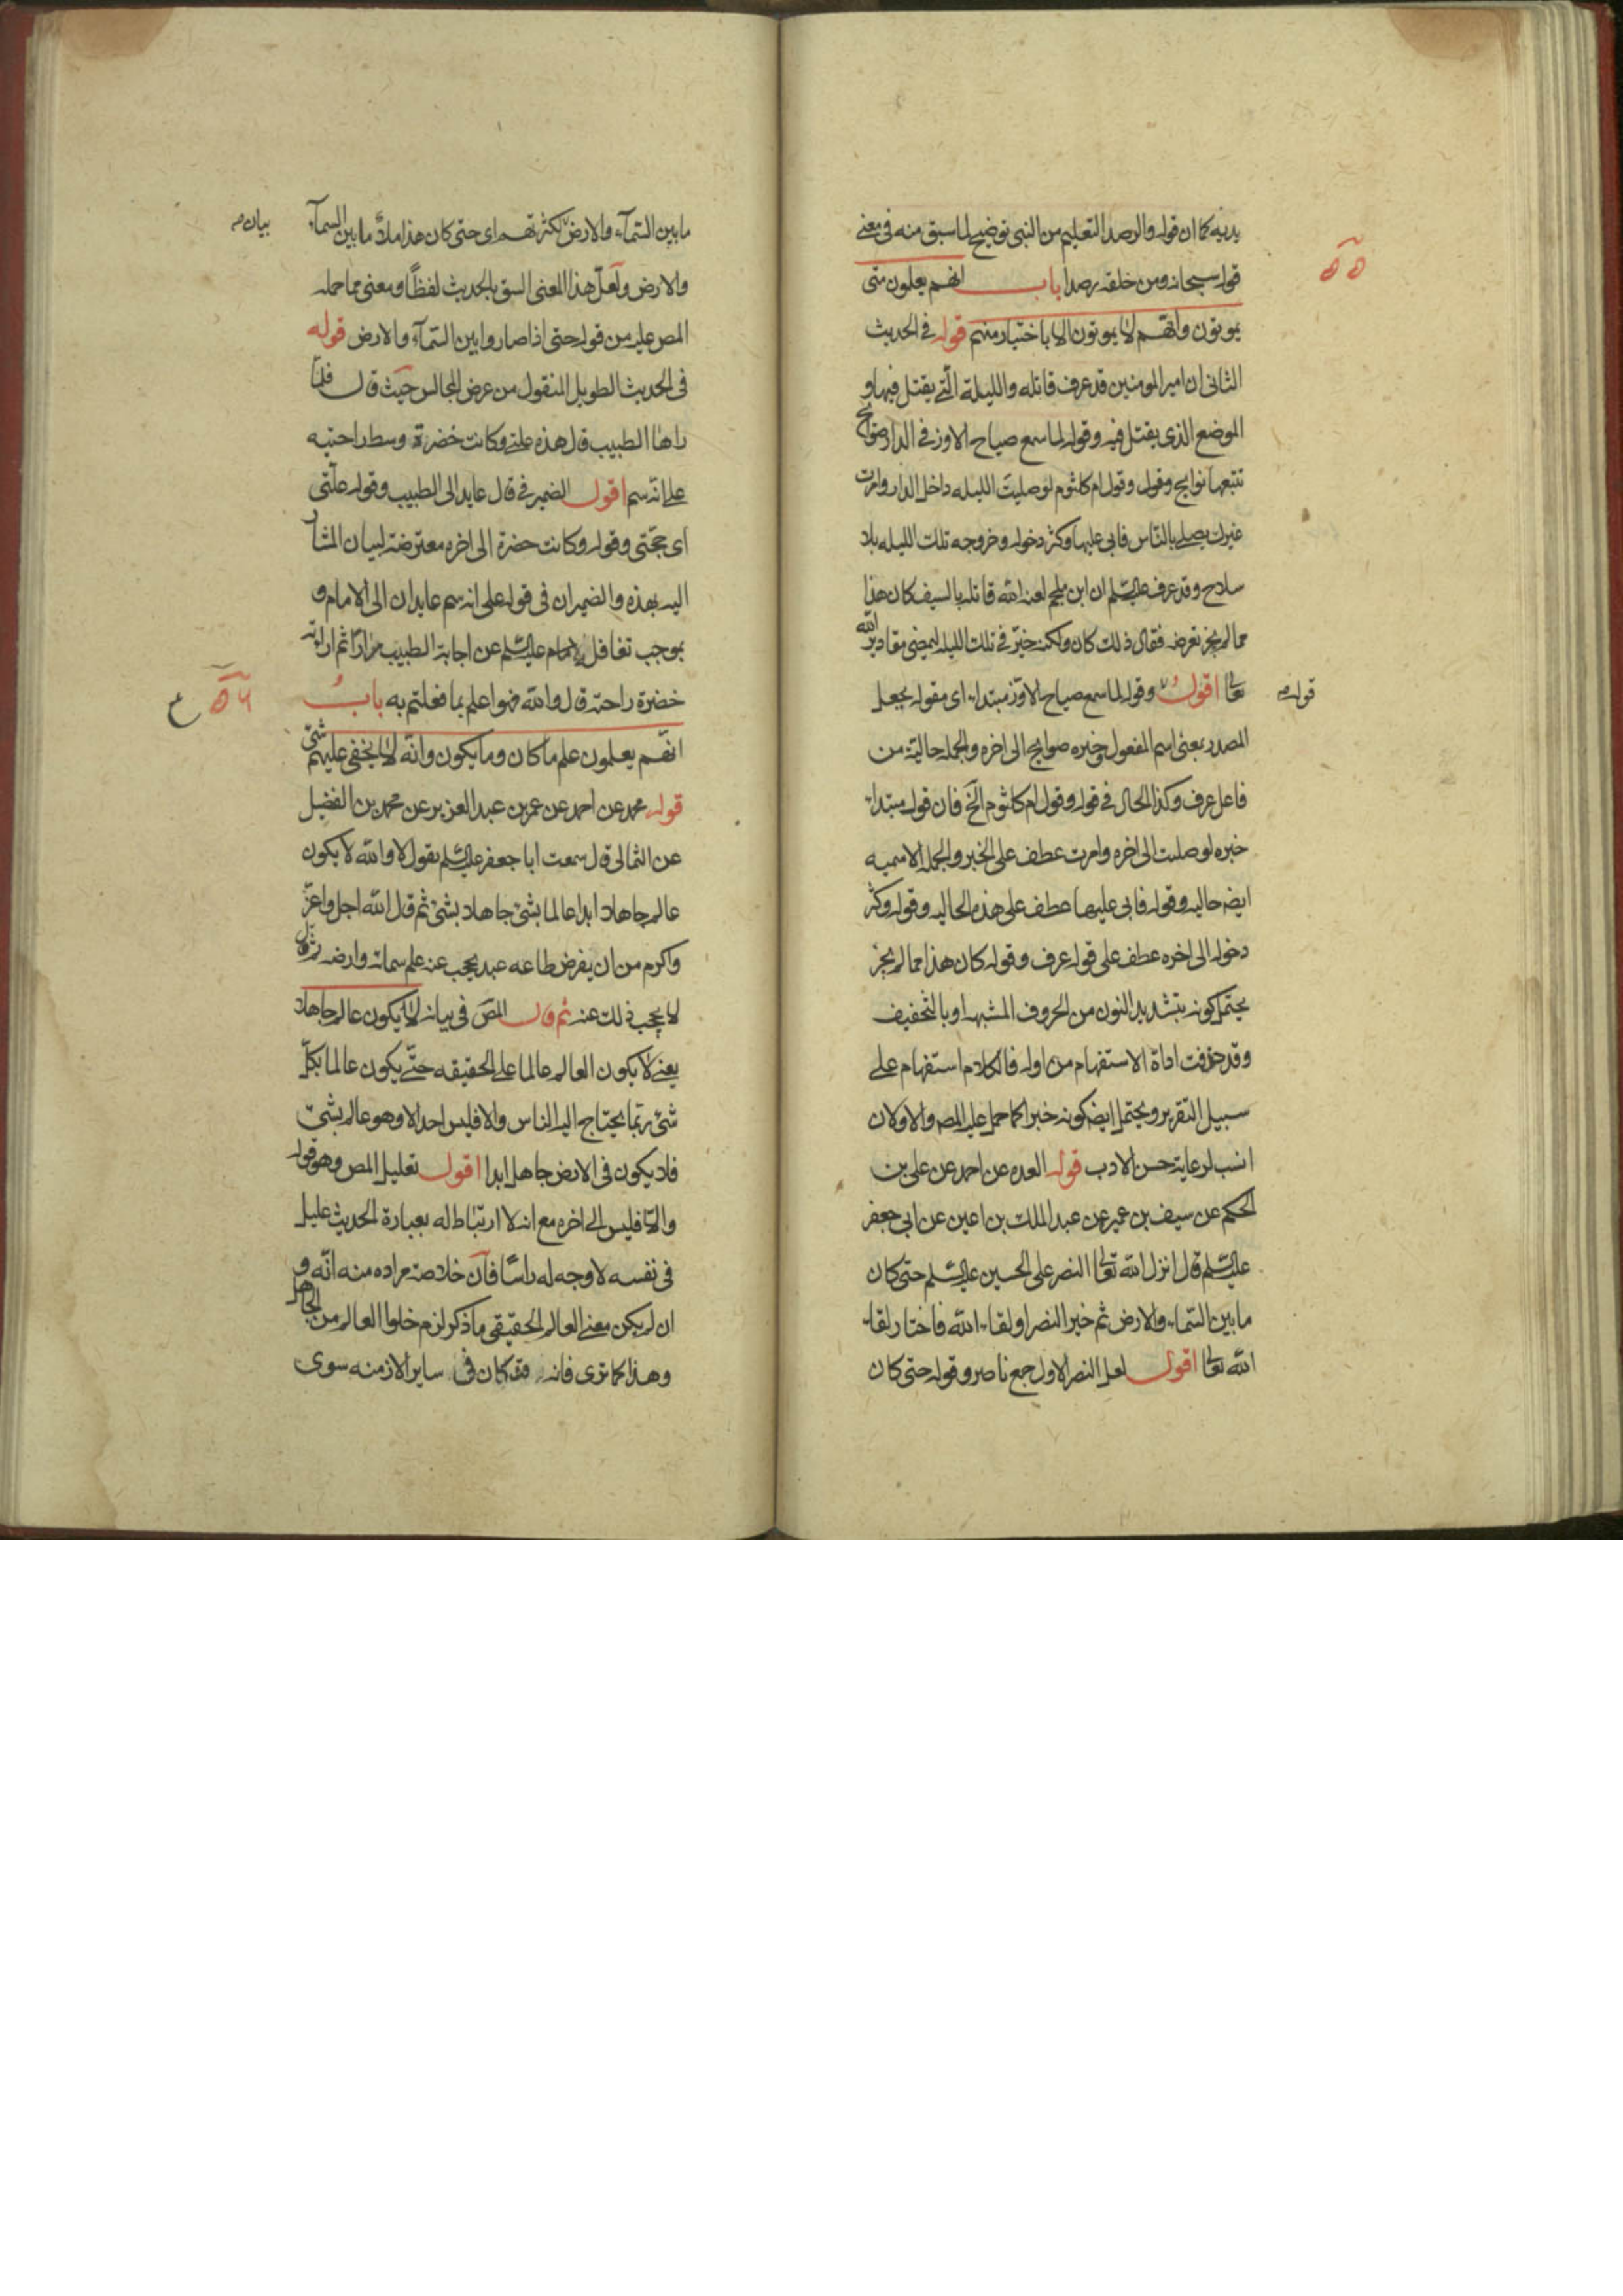 يديه كما ان قوله والرصد التعليم من النبى توضيح لما سبق منه فى معنى
قوله سبحانه ومن خلفه رصدا باب انهم يعلمون متى
٥٥
يموتون وانهم لا يموتون الا باختيار منهم قوله فى الحديث
الثانى ان امير المومنين قد عرف قاتله والليلة التى يقتل فيها و
الموضع الذى يقتل فيه وقوله لما سمع صياح الاوز فى الدار صوايح
تتبعها نوايح وقول وقول ام كلثوم لو صليت الليله داخل الدار وامرت
غيرك يصلى بالناس فابى عليها وكثر دخوله وخروجه تلك الليله بلا
سلاح وقد عرف عليه السلم ان ابن ملجم لعنه الله قاتله بالسيف كان هذا
مما لم يجز تعرضه فقال ذلك كان ولكنه خيّر فى تلك الليله ليمضى مقادير الله
تعا اقول وقوله لما سمع صياح الاوز مبتداء اى مقوله بجعل
قوله
المصدر بمعنى اسم المفعول وخبره صوايح الى اخره والجمله حالية من
فاعل عرف وكذا الحال فى قوله وقول ام كلثوم الخ فان قوله مبتداء
خبره لو صليت الى اخره وامرت عطف على الخبر والجملة الاسميه
ايضه حاليه وقوله فابى عليها عطف على هذه الحاليه وقوله وكثر
دخوله الى اخره عطف على قوله عرف وقوله كان هذا مما لم يجز
يحتمل كونه بتشديد النون من الحروف المشبهه او بالتخفيف
وقد حذفت اداة الاستفهام من اوله فالكلام استفهام على
سبيل التقرير ويحتمل ايضه كونه خبرا كما حمل عليه المصه والاولان
انسب لرعاية حسن الادب قوله العده عن احمد عن على بن
الحكم عن سيف بن عميره عن عبد الملك بن اعين عن ابى جعفر
عليه السلم قال انزل الله تعا النصر على الحسين عليه السلم حتى كان
ما بين السماء والارض ثم خير النصر او لقاء الله فاختار لقاء
الله تعا اقول لعل النصر الاول جمع ناصر وقوله حتى كان
ما بين السمآء والارض لكثرتهم اى حتى كان هذا ملأ ما بين السمآء
بيان
والارض ولعلّ هذا المعنى السق بالحديث لفظًا ومعنى مما حمله
المص عليه من قوله حتى اذا صاروا بين السمآء والارض قوله
فى الحديث الطويل المنقول من عرض المجالس حيث قال فلمّا
راها الطبيب قال هذه علتى وكانت خضرة وسط راحتيه
على انّه سم اقول الضمير فى قال عايد الى الطبيب وقوله علّتى
اى حجّتى وقوله وكانت خضرة الى اخره معترضة لبيان المشار
اليه بهذه والضميران فى قوله على انه سم عايدان الى الامام و
بموجب تغافل الامام عليه السلم عن اجابة الطبيب مرارًا ثم اراءته
خضرة راحته قال والله لهو اعلم بما فعلتم به باب
٥٦
ع
انّهم يعلمون علم ما كان وما يكون وانّه لا يخفى عليهم شئ
قوله محمد عن احمد عن عمر بن عبد العزيز عن محمد بن الفضيل
عن الثمالى قال سمعت ابا جعفر عليه السلم يقول لا والله لا يكون
عالم جاهلا ابدا عالما بشئ جاهلا بشئ ثم قال الله اجل واعزّ
واكرم من ان يفرض طاعه عبد يحجب عنه علم سمائه وارضه ثم قال
لا يحجب ذلك عنه ثم قال المصّ فى بيانه لا يكون عالم جاهلا
يعنى لا يكون العالم عالما على الحقيقه حتّى يكون عالما بكلّ
شئ ربّما يحتاج اليه الناس والا فليس احد الا وهو عالم بشئ
فلا يكون فى الارض جاهل ابدا اقول تعليل المص وهو قوله
والّا فليس الى اخره مع انه لا ارتباط له بعبارة الحديث عليل
فى نفسه لا وجه له راسًا فانّ خلاصة مراده منه انّه و
ان لم يكن معنى العالم الحقيقى ما ذكر لزم خلوا العالم من الجاهل
وهذا كما ترى فانه قد كان فى ساير الازمنه سوى